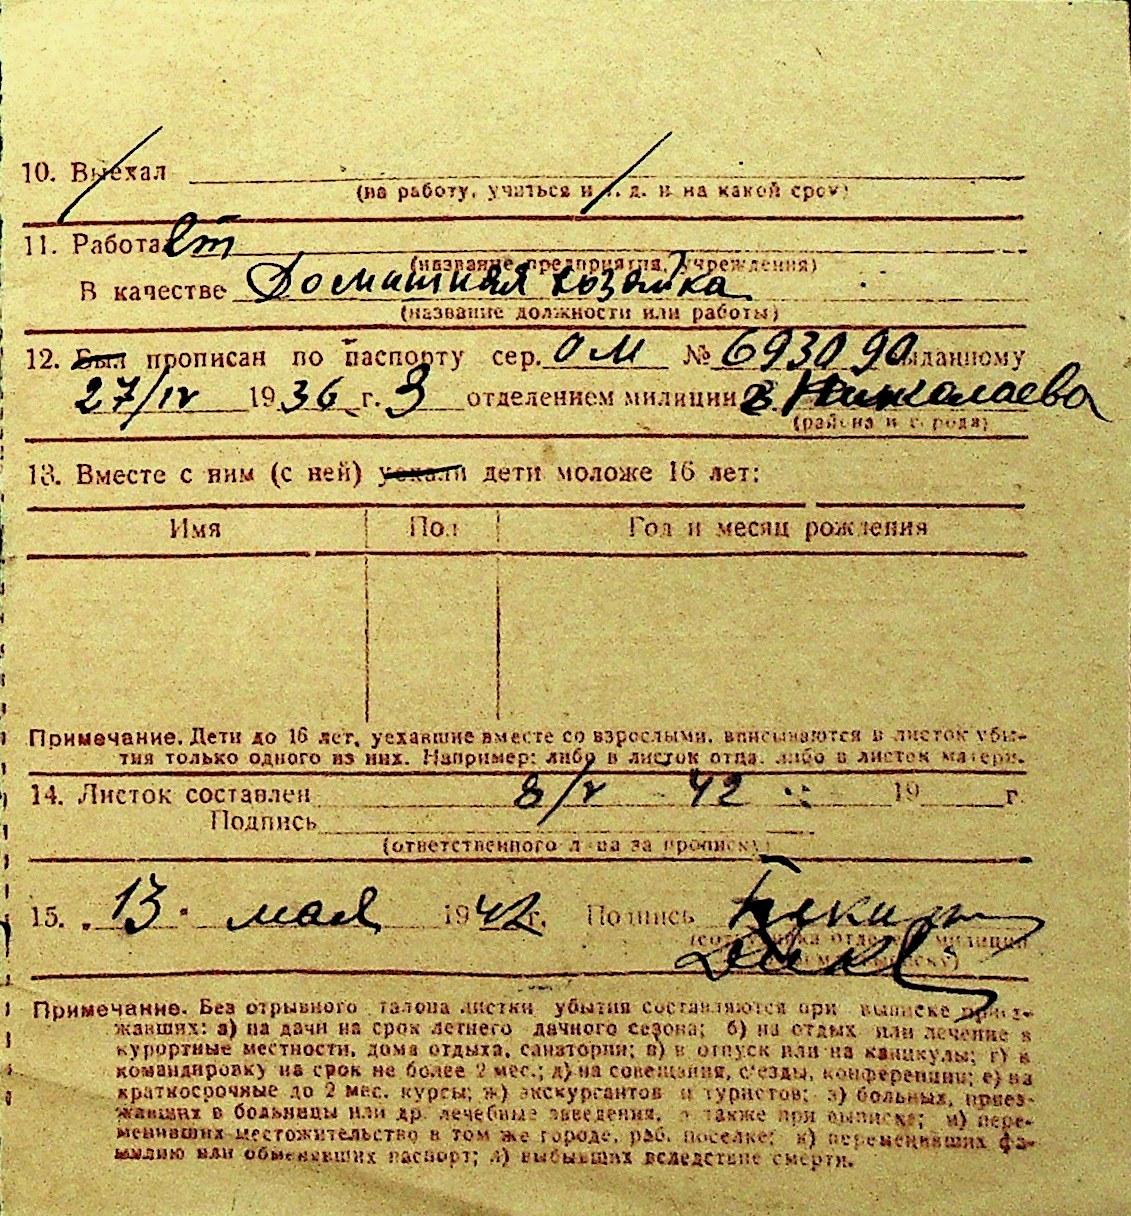 10. Выехал
(на работу, учиться и т. д. и на какой срок)
11. Работа
(название предприятия, учреждения)
В качестве Домашная хозяйка
(название должности или работы)
12. Был прописан по паспорту сер. ОМ № 693090 выданному
27/IV 1936 г. 3 отделением милиции г. Николаева
(района и города)
13. Вместе с ним (с ней) уехали дети моложе 16 лет:
Имя Пол Год и месяц рождения
Примечание. Дети до 16 лет, уехавшие вместе со взрослыми, вписываются в листок убы-
тия только одного из них. Например: либо в листок отца, либо в листок матери.
14. Листок составлен 8/V 42 19 г.
Подпись
(ответственного лица за прописку)
15. „13" мая 1942 г. Подпись
(сотрудника отделен. милиции
Примечание. Без отрывного талона листки убытия составляются при выписке приез-
жавших: а) на дачи на срок летнего дачного сезона; б) на отдых или лечение в
курортные местности, дома отдыха, санатории; в) в отпуск или на каникулы; г) в
командировку на срок не более 2 мес.; д) на совещания, с'езды, конференции; е) на
краткосрочные до 2 мес. курсы; ж) экскурсантов и туристов; з) больных, приез-
жавших в больницы или др. лечебные заведения, а также при выписке; и) пере-
менивших местожительство в том же городе, раб. поселке; к) переменивших фа-
милию или обменявших паспорт; л) выбывших вследствие смерти.